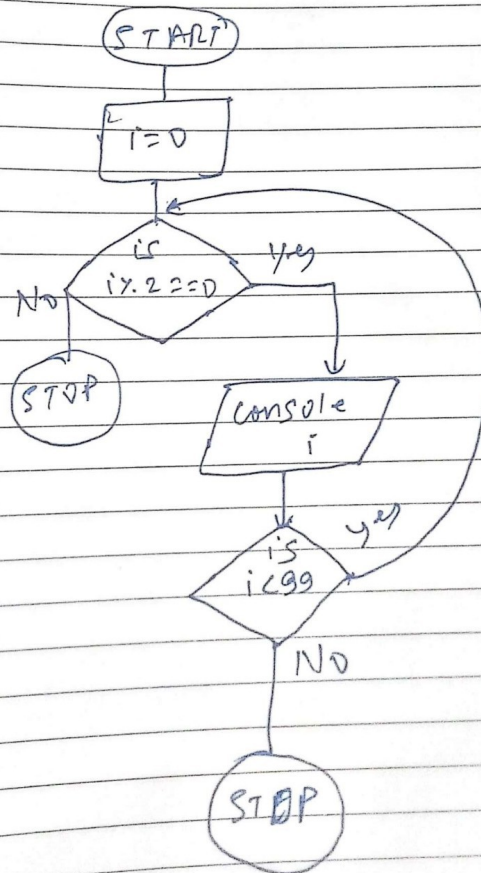 START
i=0
is
i%.2==0
Yes
No
STOP
console
i
is
i<99
yes
No
STOP